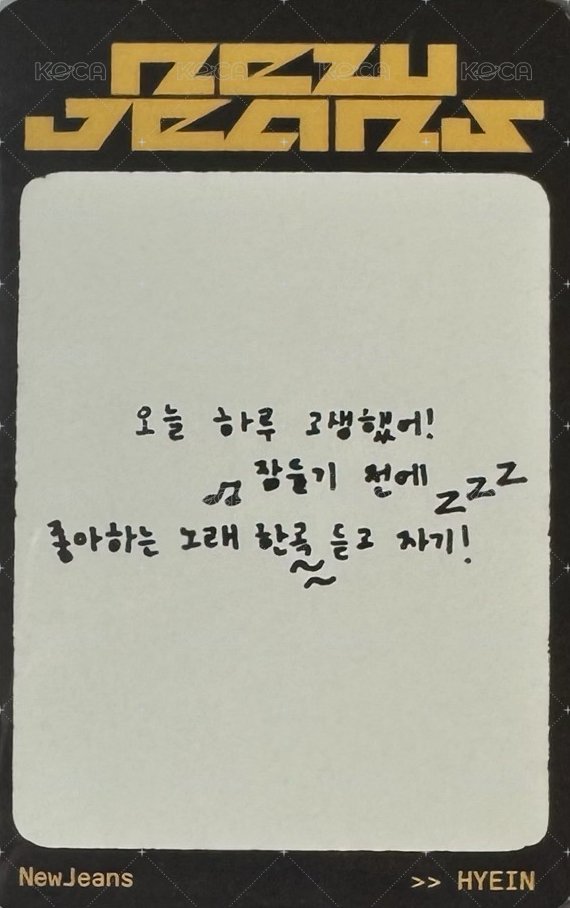 NEW
JEANS
KOCA KOCA KOCA KOCA
오늘 하루 고생했어!
잠들기 전에 zzz
좋아하는 노래 한곡 듣고 자기!
NewJeans
>> HYEIN